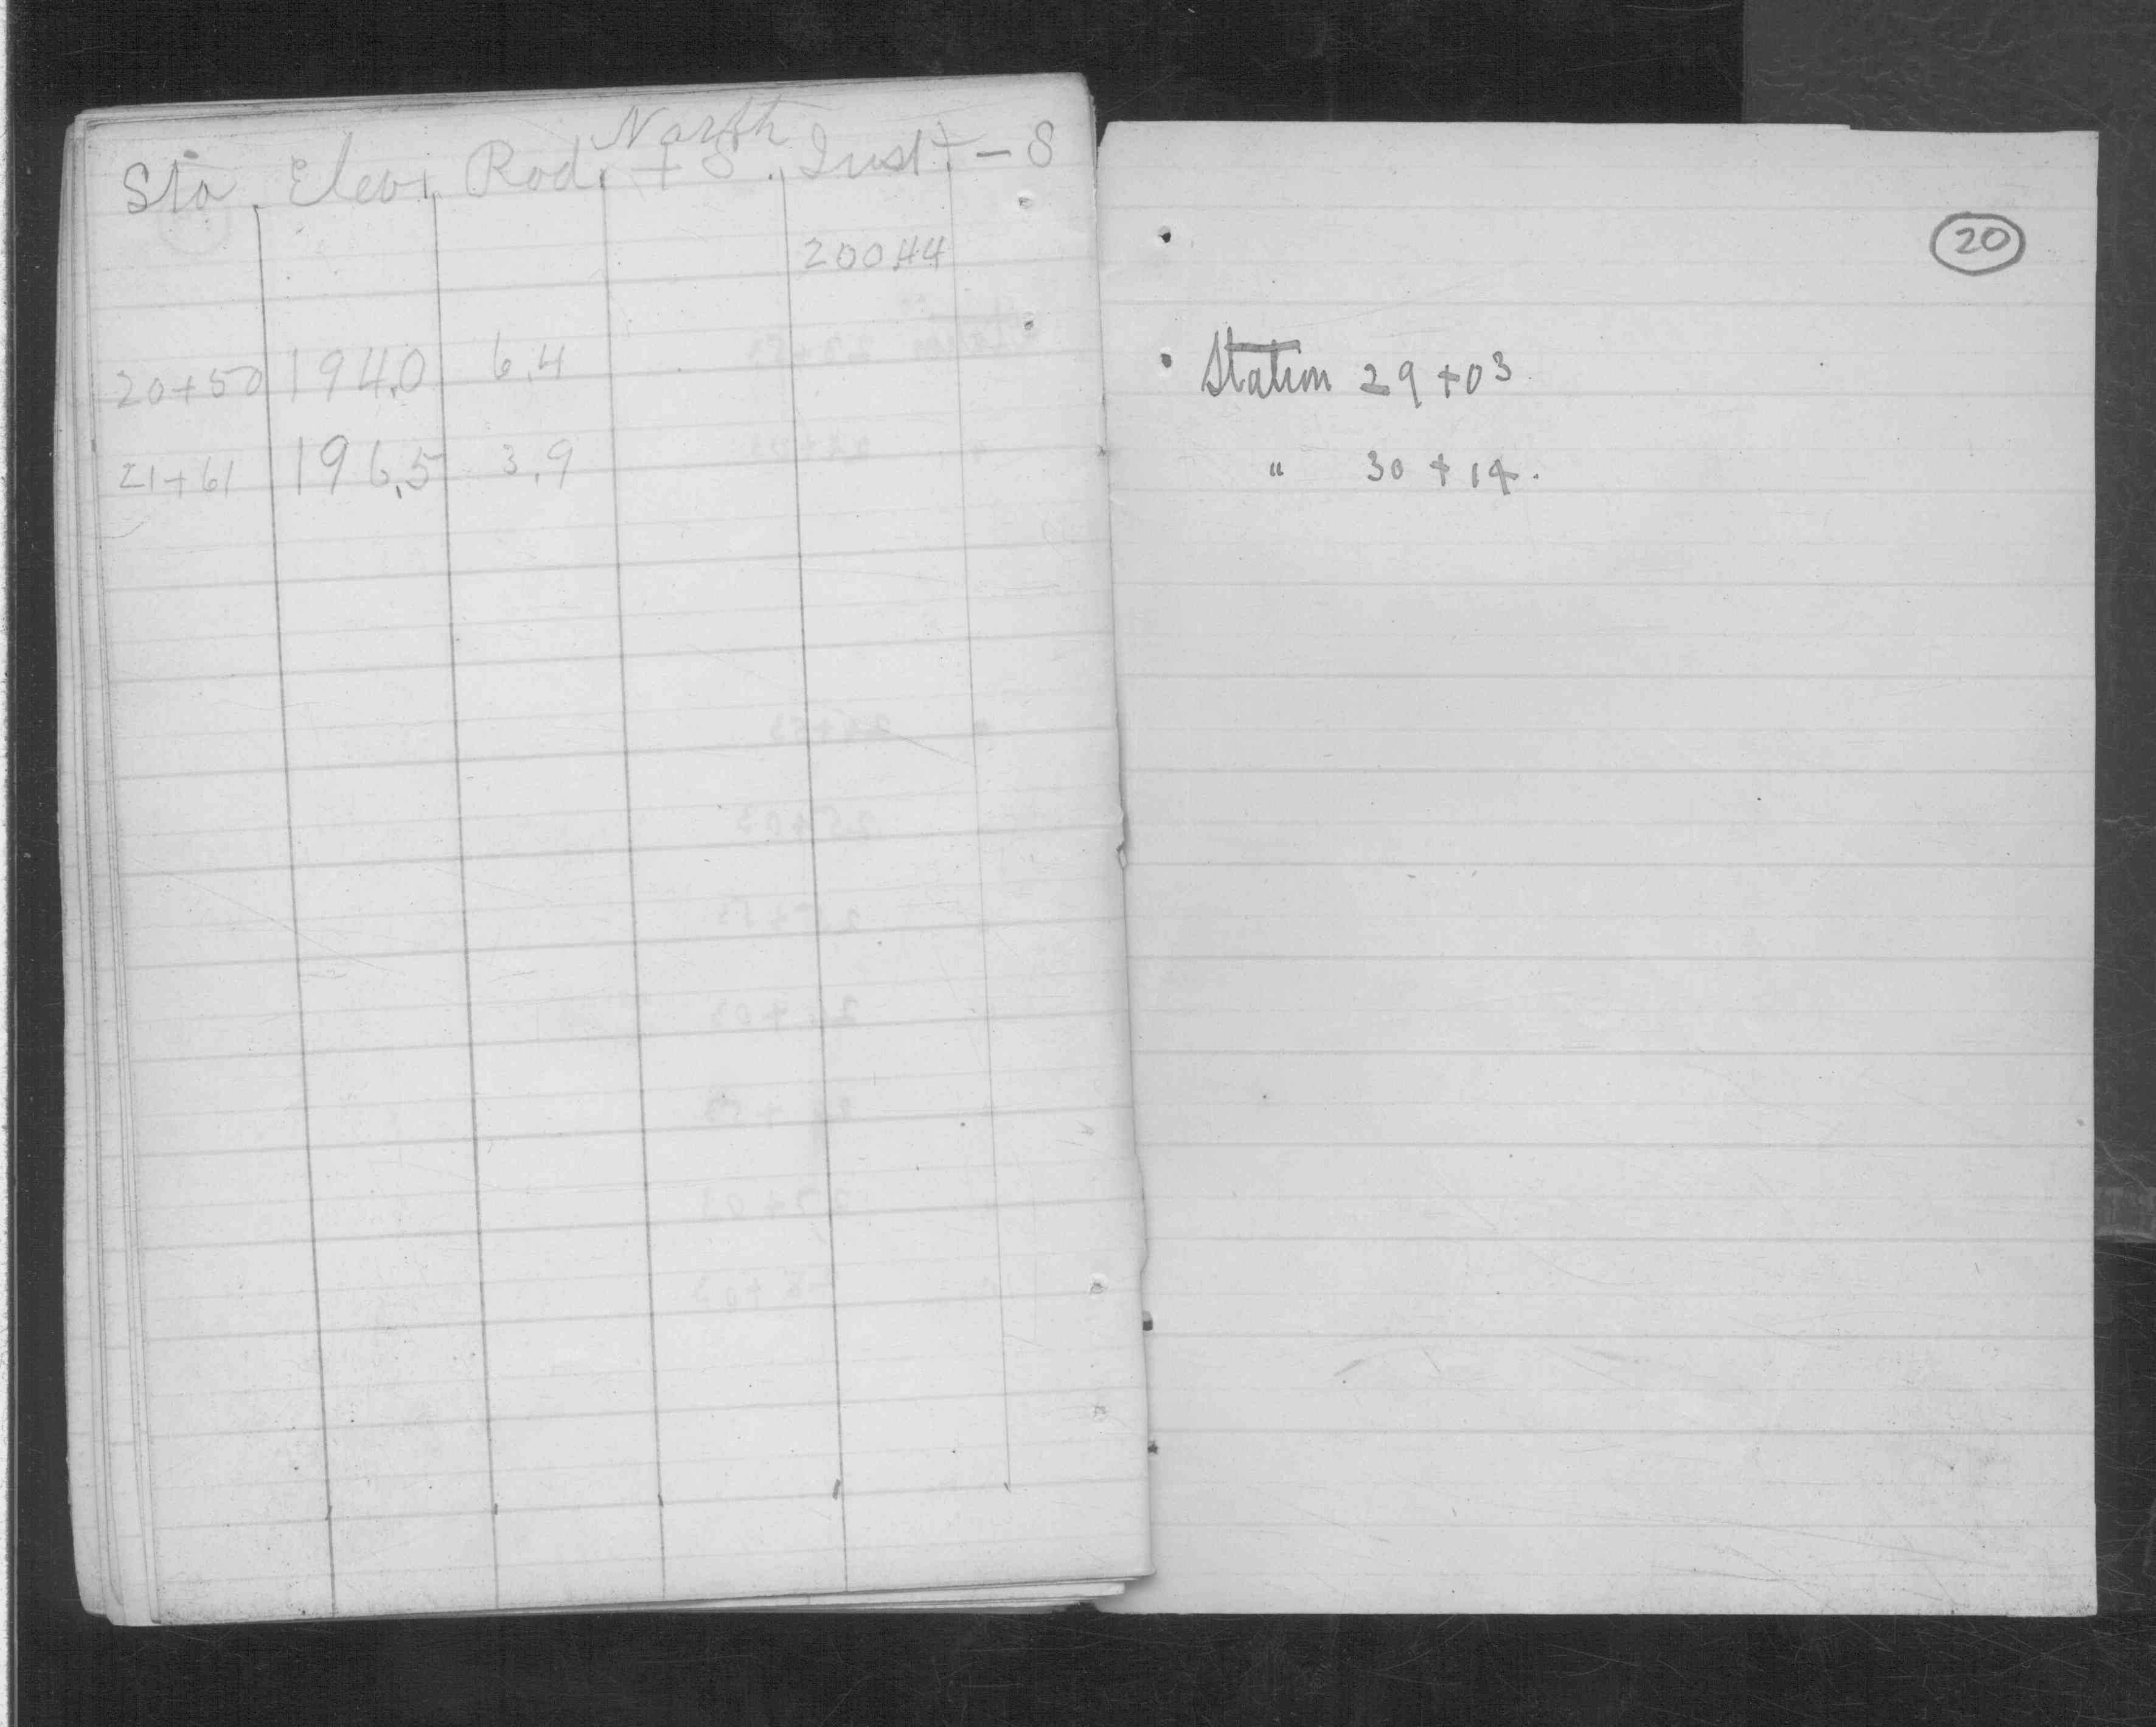 North
Sta. Elev. Rod. + S. Inst. - S
200.44
20+50 194.0 6.4
21+61 196.5 3.9
20
Station 29+03
" 30+14.